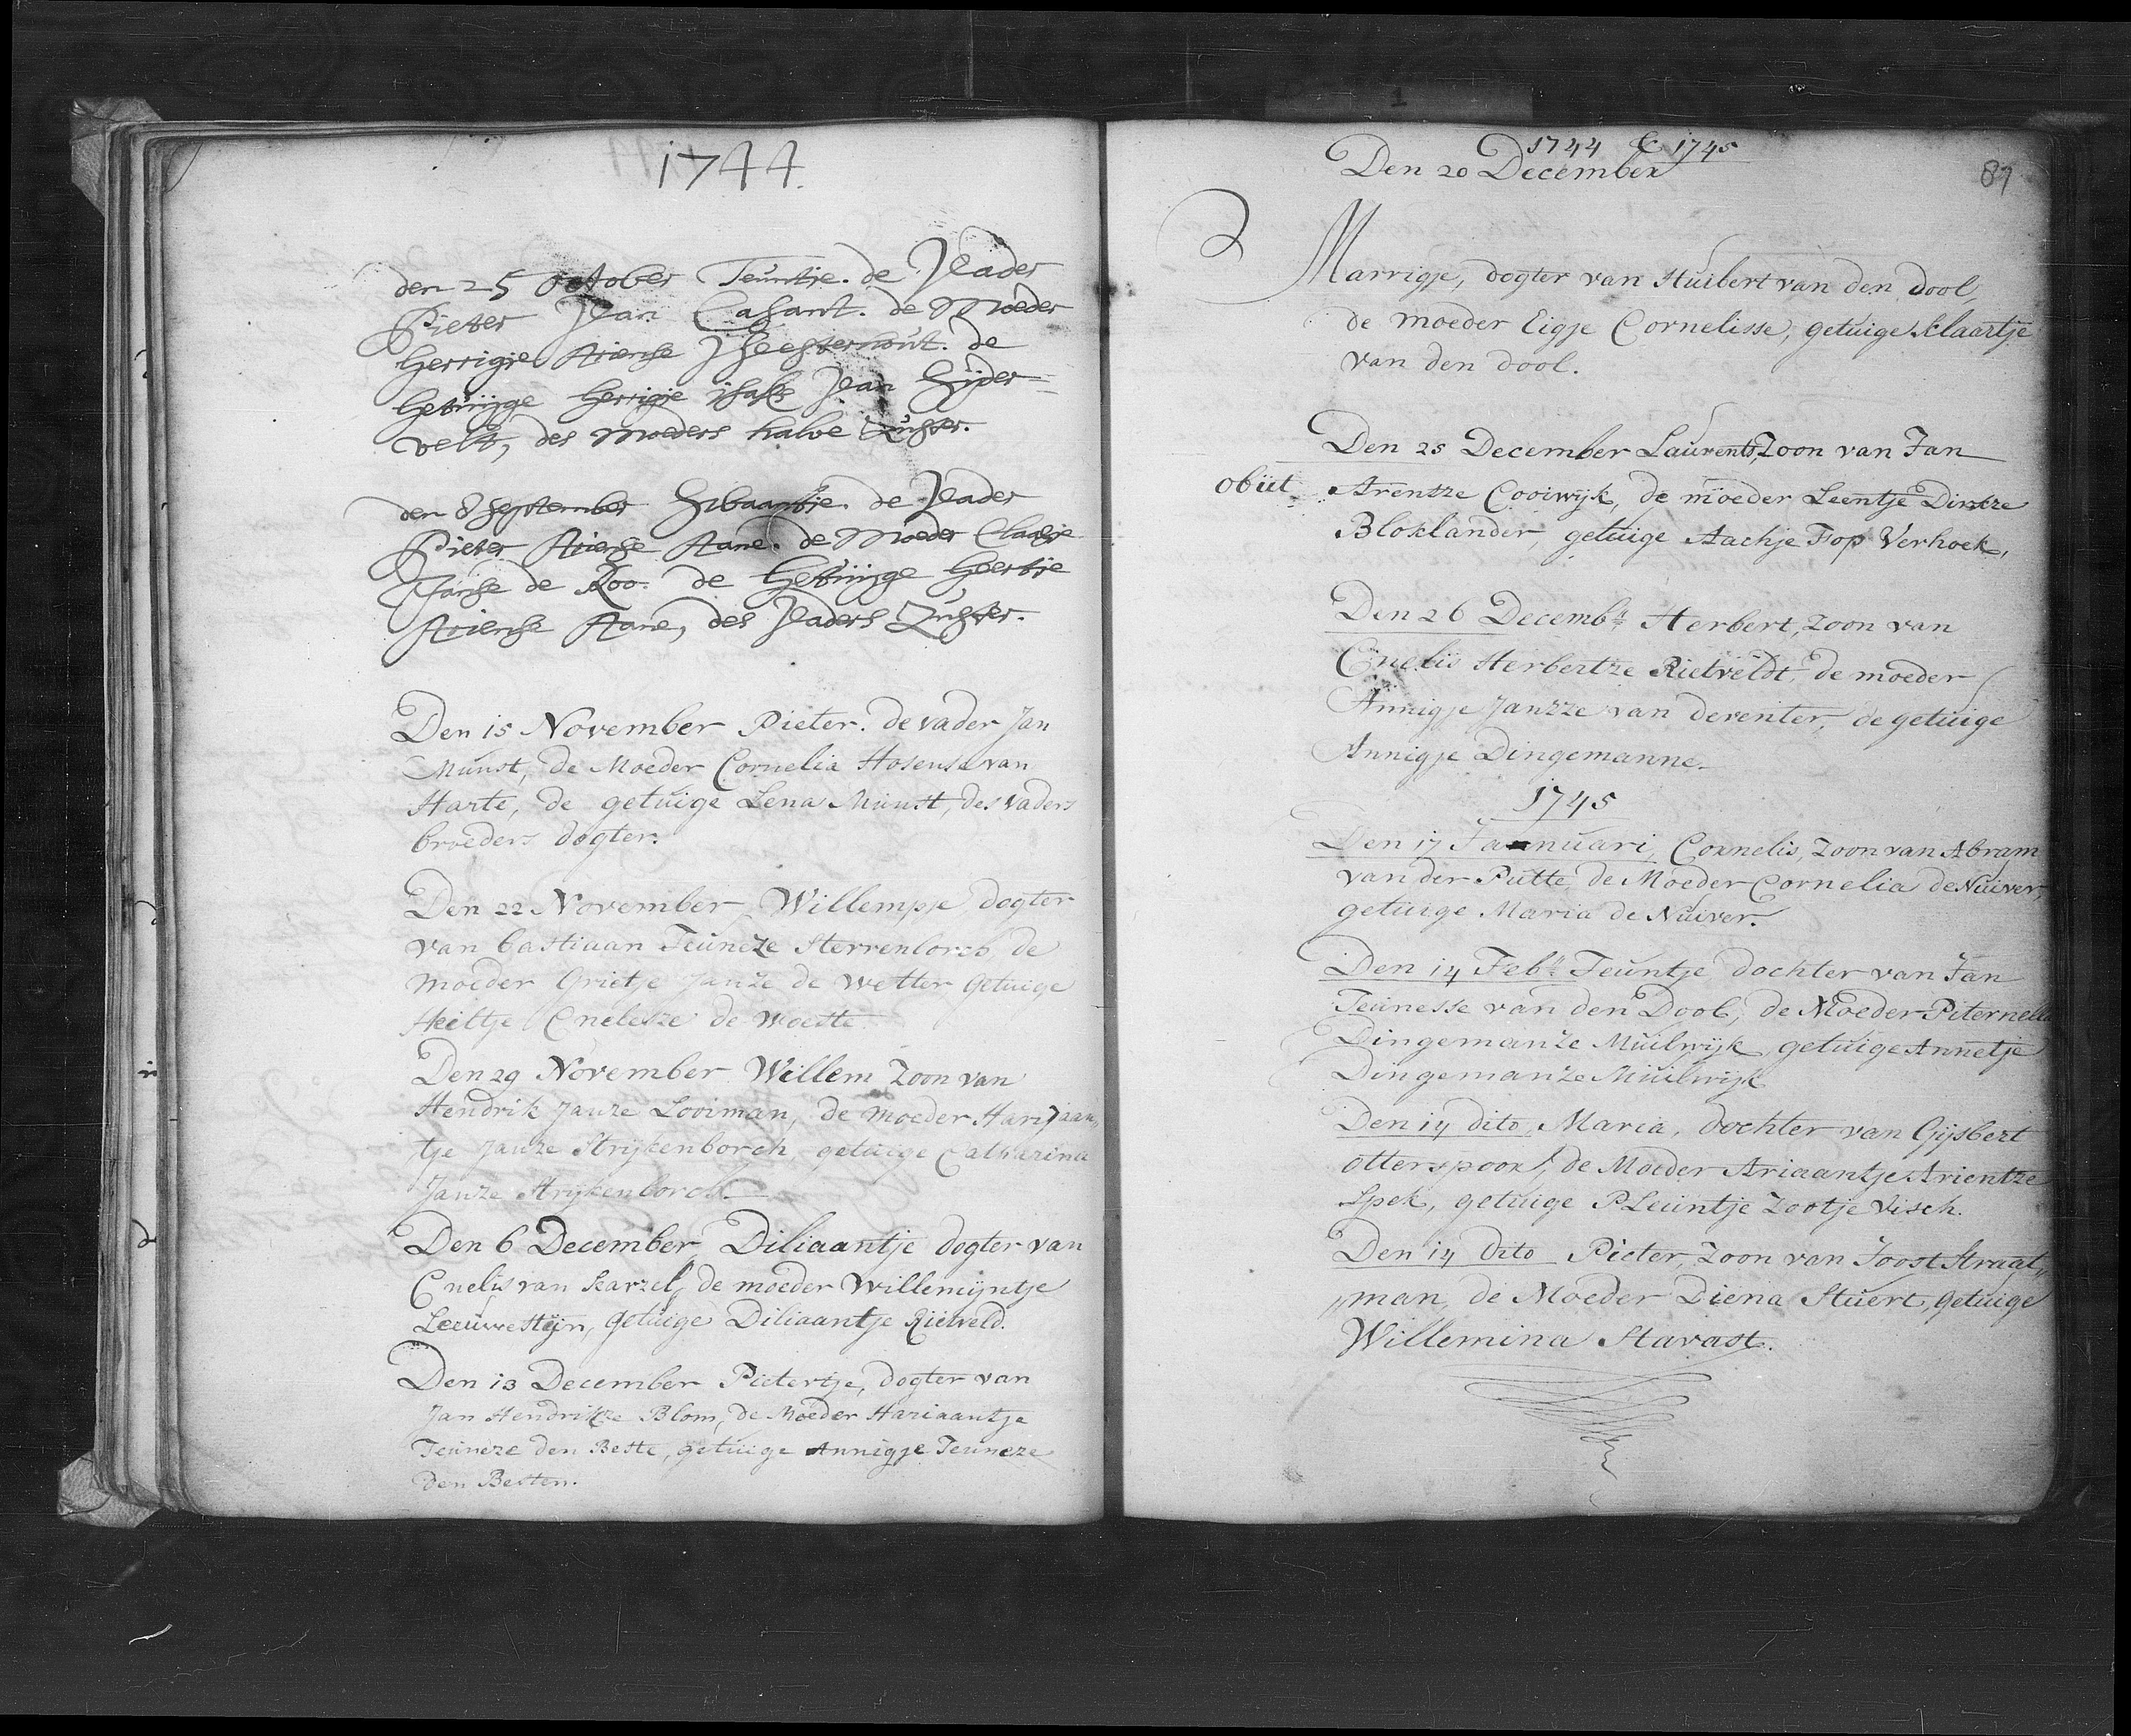 1744.
den 25 October Teuntje. de Vader
Pieter Van Casant. de Moeder
Gerrigje Ariense Heesterhout. de
Getuijge Gerrigje Isakse Van Hijder=
velt, des Moeders halve Zuster.
den 8 September Sibaantje. de Vader
Pieter Ariense Aane. de Moeder Claasje
Janse de Roo. de Getuijge Geertje
Ariense Aane, des Vaders Zuster.
Den 15 November Pieter. de vader Jan
Munst, de Moeder Cornelia Hosense van
Harte, de getuige Lena Munst, des vaders
broeders dogter.
Den 22 November, Willempje dogter
van bastiaan Teuneze Sterrenborch, de
moeder Grietje Janze de Wetter, getuige
Heiltje Cnelesze de Woeste
Den 29 November Willem Zoon van
Hendrik Janze Looiman, de moeder Harijaan,,
tje Janze Strijkenborch, getuige Catharina
Janze Strijkenborch.
Den 6 December, Diliaantje dogter van
Cnelis van karzel, de moeder Willemijntje
Leeuwesteijn, getuige Diliaantje Rietveld.
Den 13 December Pietertje, dogter van
Jan Hendrikze Blom, de Moeder Hariaantje
Teuneze den Beste, getuige Annigje Teuneze
den Besten.
1744 & 1745
87
Den 20 December
Marrigje, dogter van Huibert van den dool,
de moeder Eigje Cornelisse, getuige klaartje
van den dool.
Den 25 December Laurents, Zoon van Jan
obiit Arentze Cooiwijk, de moeder Leentje Dirkze
Bloklander, getuige Aachje Fop Verhoek,
Den 26 Decembr. Herbert, zoon van
Cnelis Herbertze Rietveldt, de moeder
Annigje Janzze van deventer, de getuige
Annigje Dingemanne.
1745
Den 17 Jannuari, Cornelis, Zoon van Abram
van der Putte, de Moeder Cornelia de Nuiver,
getuige Maria de Nuiver.
Den 14 Febr. Teuntje, dochter van Jan
Teunesse van den Dool, de Moeder Piternella
Dingemanze Muilwijk, getuige Annetje
Dingemanze Muilwijk
Den 14 dito, Maria, dochter van Gijsbert
otterspoor, de Moeder Ariaantje Arientze
Spek, getuige PLeuntje Zootje Visch.
Den 14 dito Pieter, Zoon van Joost Straat,,
,,man, de Moeder Diena Stuert, getuige
Willemina Stavast.